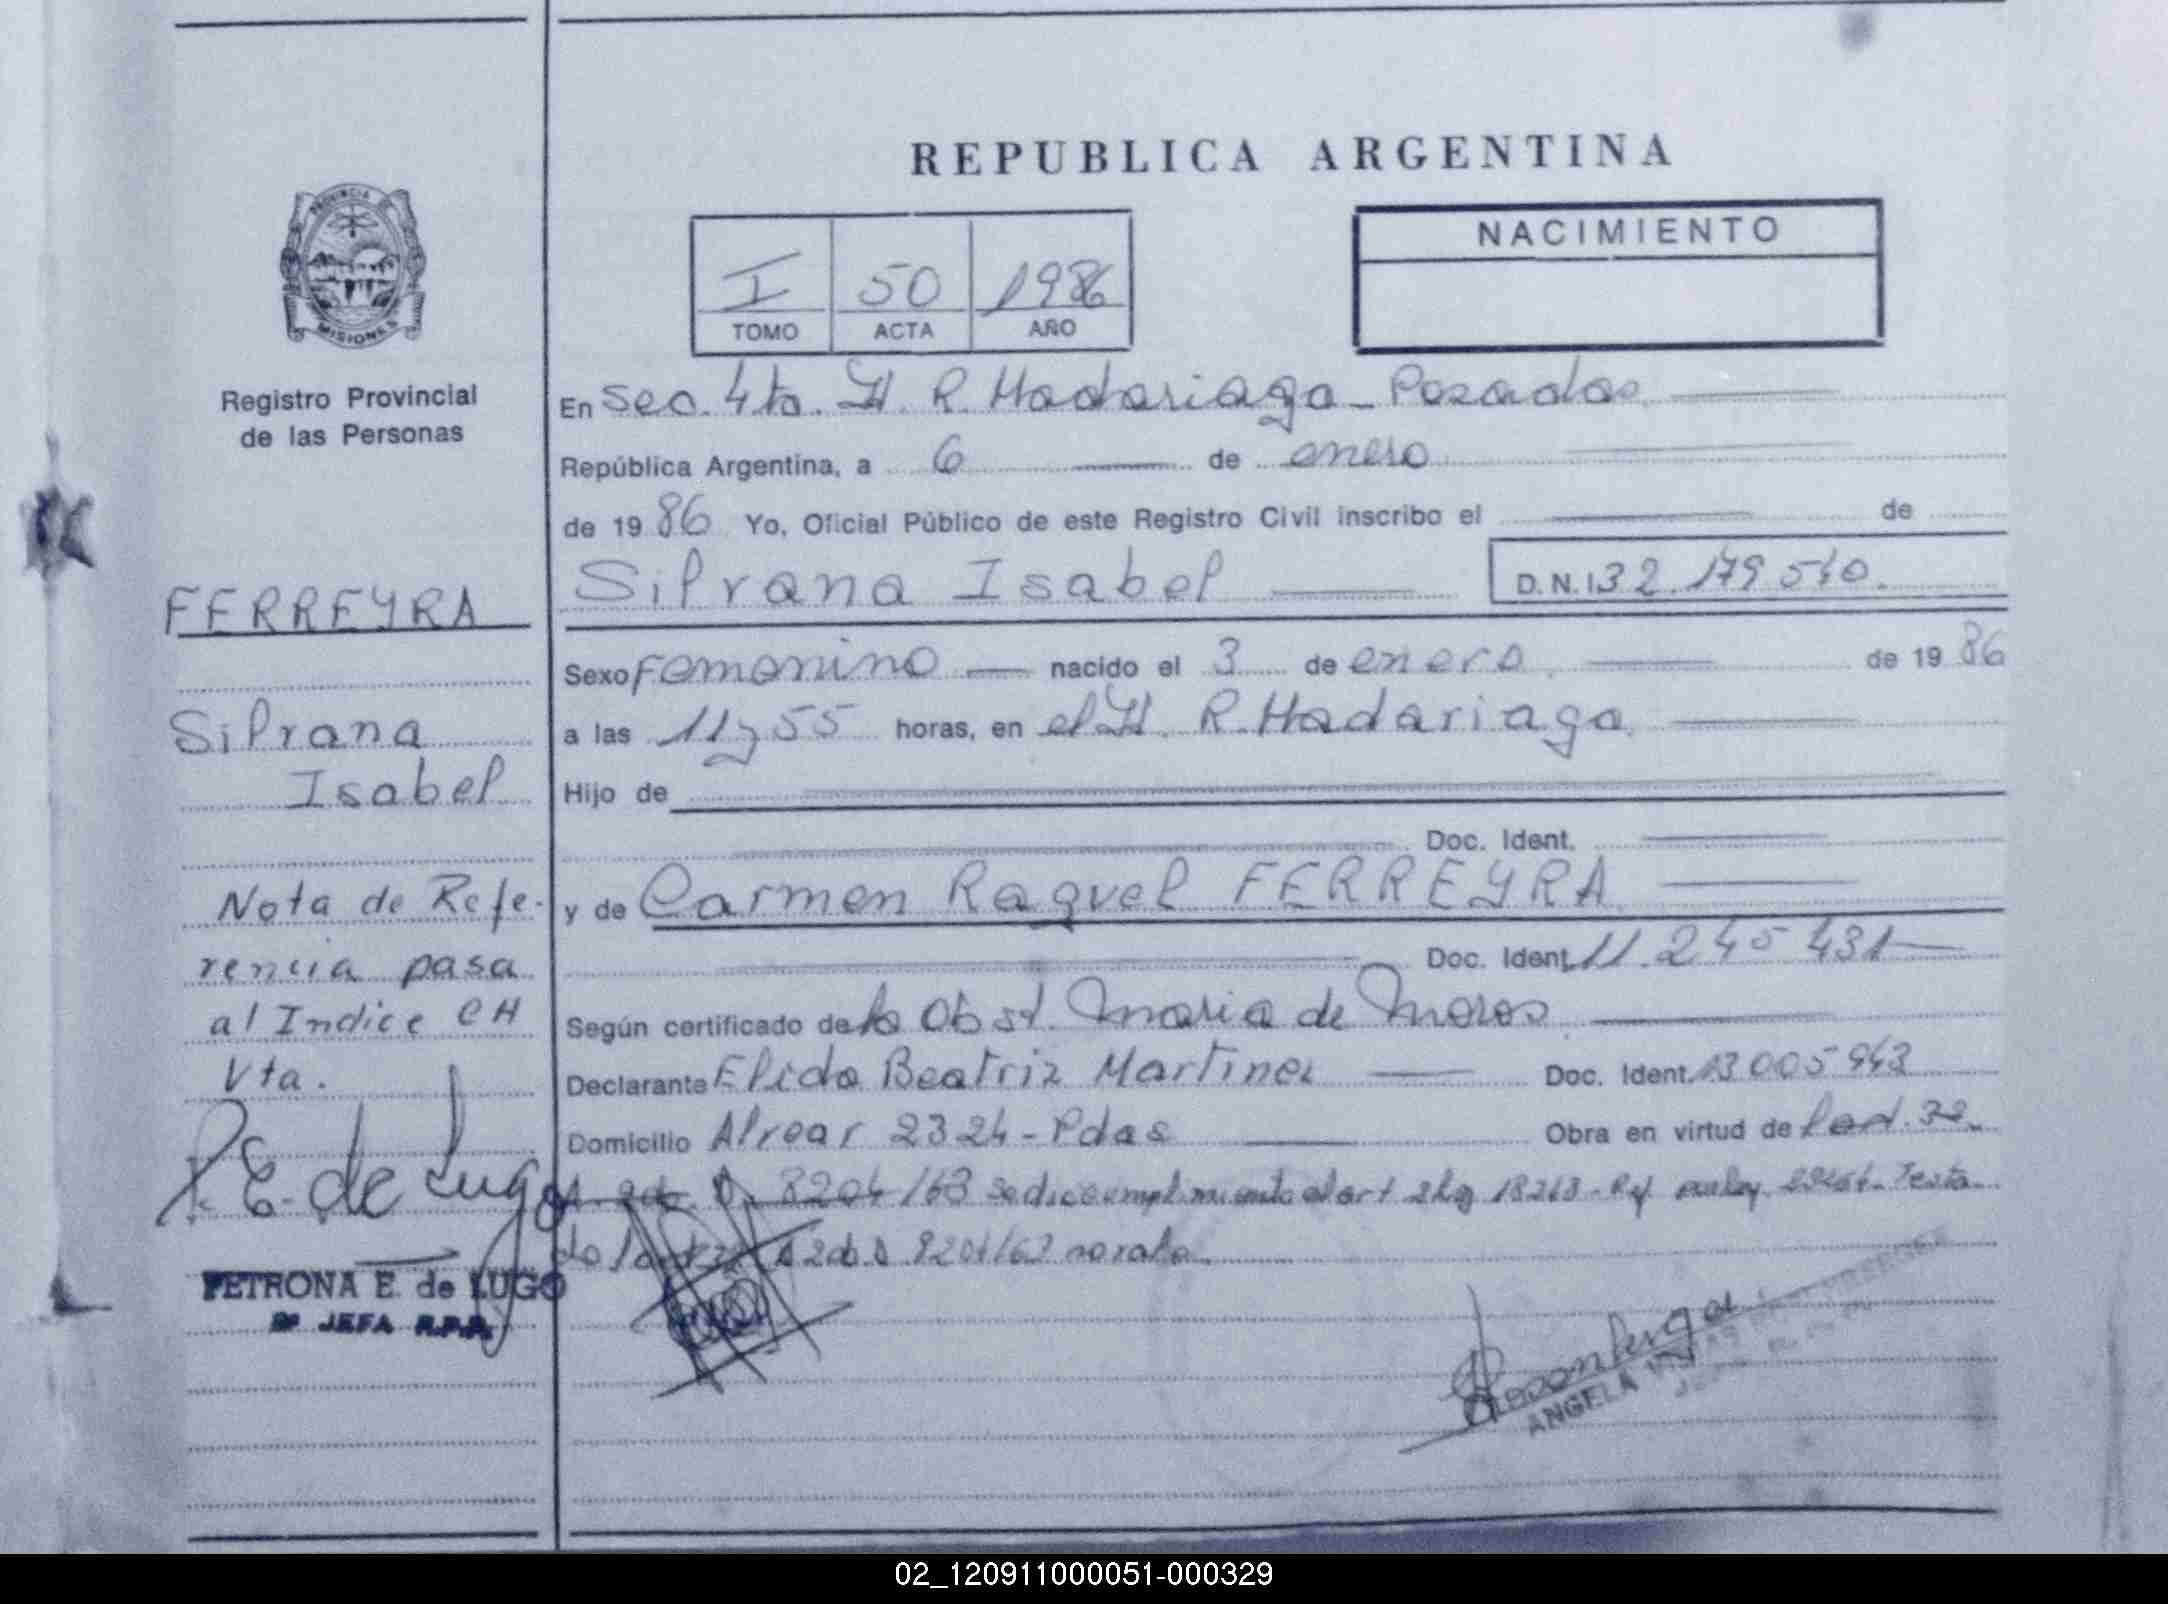 REPUBLICA ARGENTINA
PROVINCIA DE
MISIONES
Registro Provincial
de las Personas
NACIMIENTO
I 50 1986
TOMO ACTA AÑO
En Sec. 4ta. H. R. Madariaga - Posadas
República Argentina, a 6 de enero
de 1986 Yo, Oficial Público de este Registro Civil inscribo el de
Silvana Isabel D.N.I 32.179.540.
Sexo Femenino nacido el 3 de enero de 1986
a las 11 y 55 horas, en el H. R. Madariaga
Hijo de
Doc. Ident.
y de Carmen Raquel FERREYRA
Doc. Ident. 11.245.431
Según certificado de la Obst. Maria de Moros
Declarante Elida Beatriz Martinez Doc. Ident. 13005943
Domicilio Alvear 2324 - Pdas Obra en virtud de
8204/63 se dio cumplimiento al art 2 ley 18248
8204/63 no vale.
FERREYRA
Silvana
Isabel
Nota de Refe-
rencia pasa
al Indice CH
Vta.
P. E. de Lugo
PETRONA E. de LUGO
2ª JEFA R.P.P.
ANGELA
02_120911000051-000329